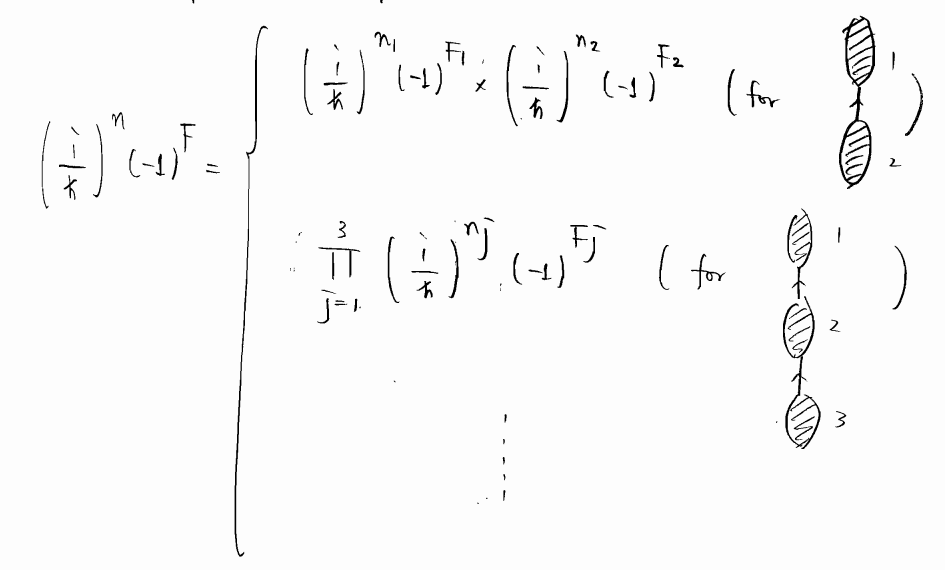 (i/ħ)^n (-1)^F = { (i/ħ)^{n_1} (-1)^{F_1} × (i/ħ)^{n_2} (-1)^{F_2} (for 1 2 )
∏_{j=1}^{3} (i/ħ)^{n_j} (-1)^{F_j} ( for 1 2 3 )